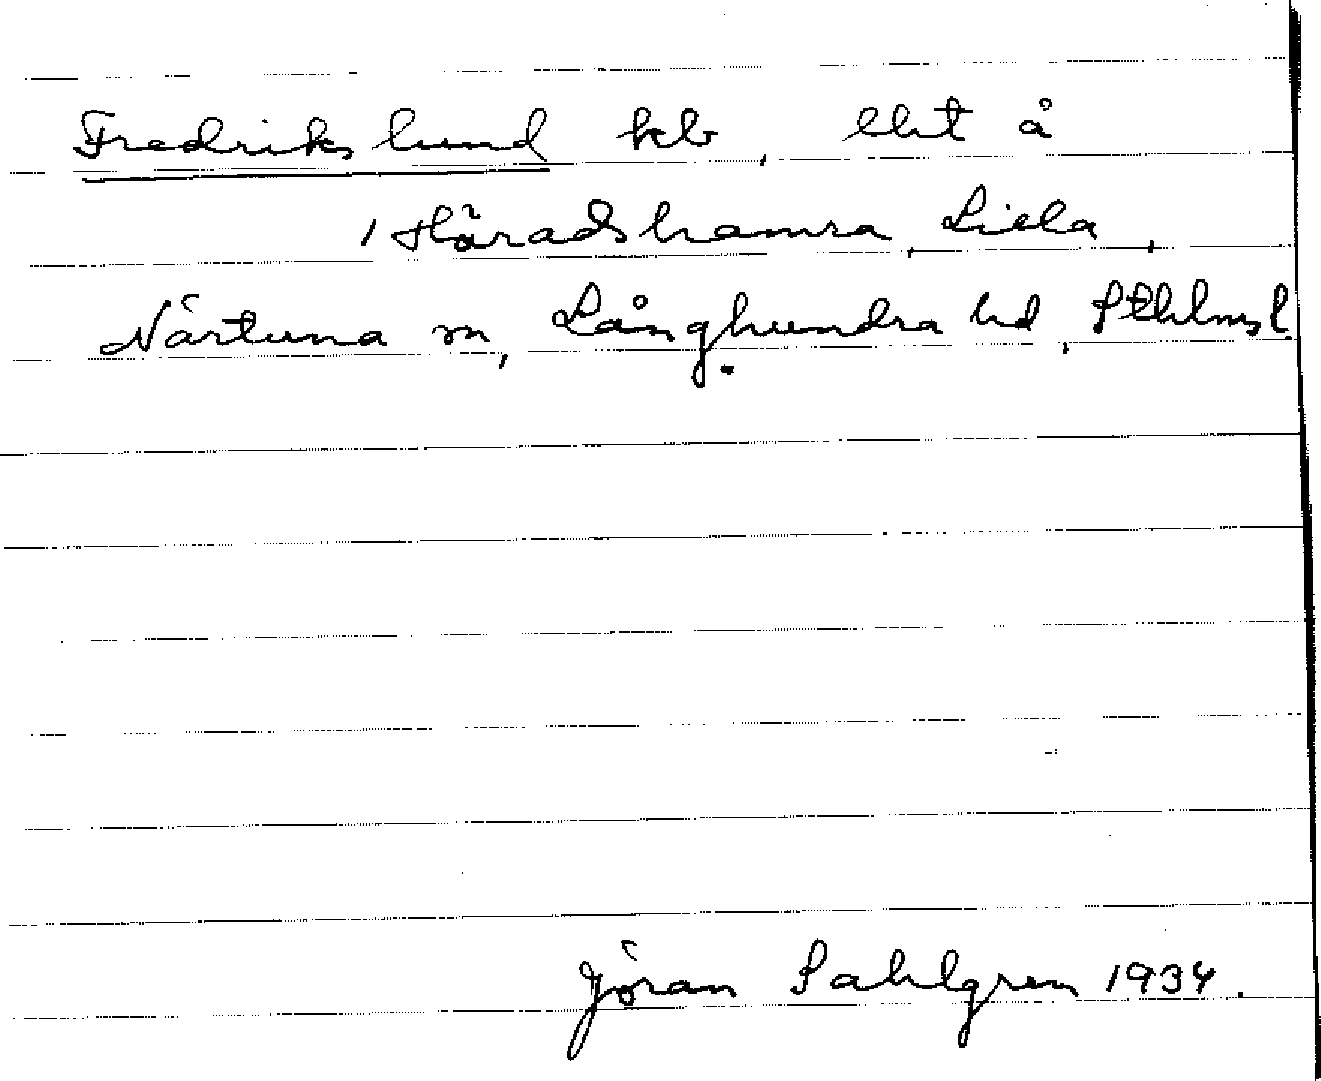 Fredrikslund , lht å
1 Häradshamra, Lilla,
Närtuna sn, Långhundra hd, Sthlms l.
Jöran Sahlgren 1934.